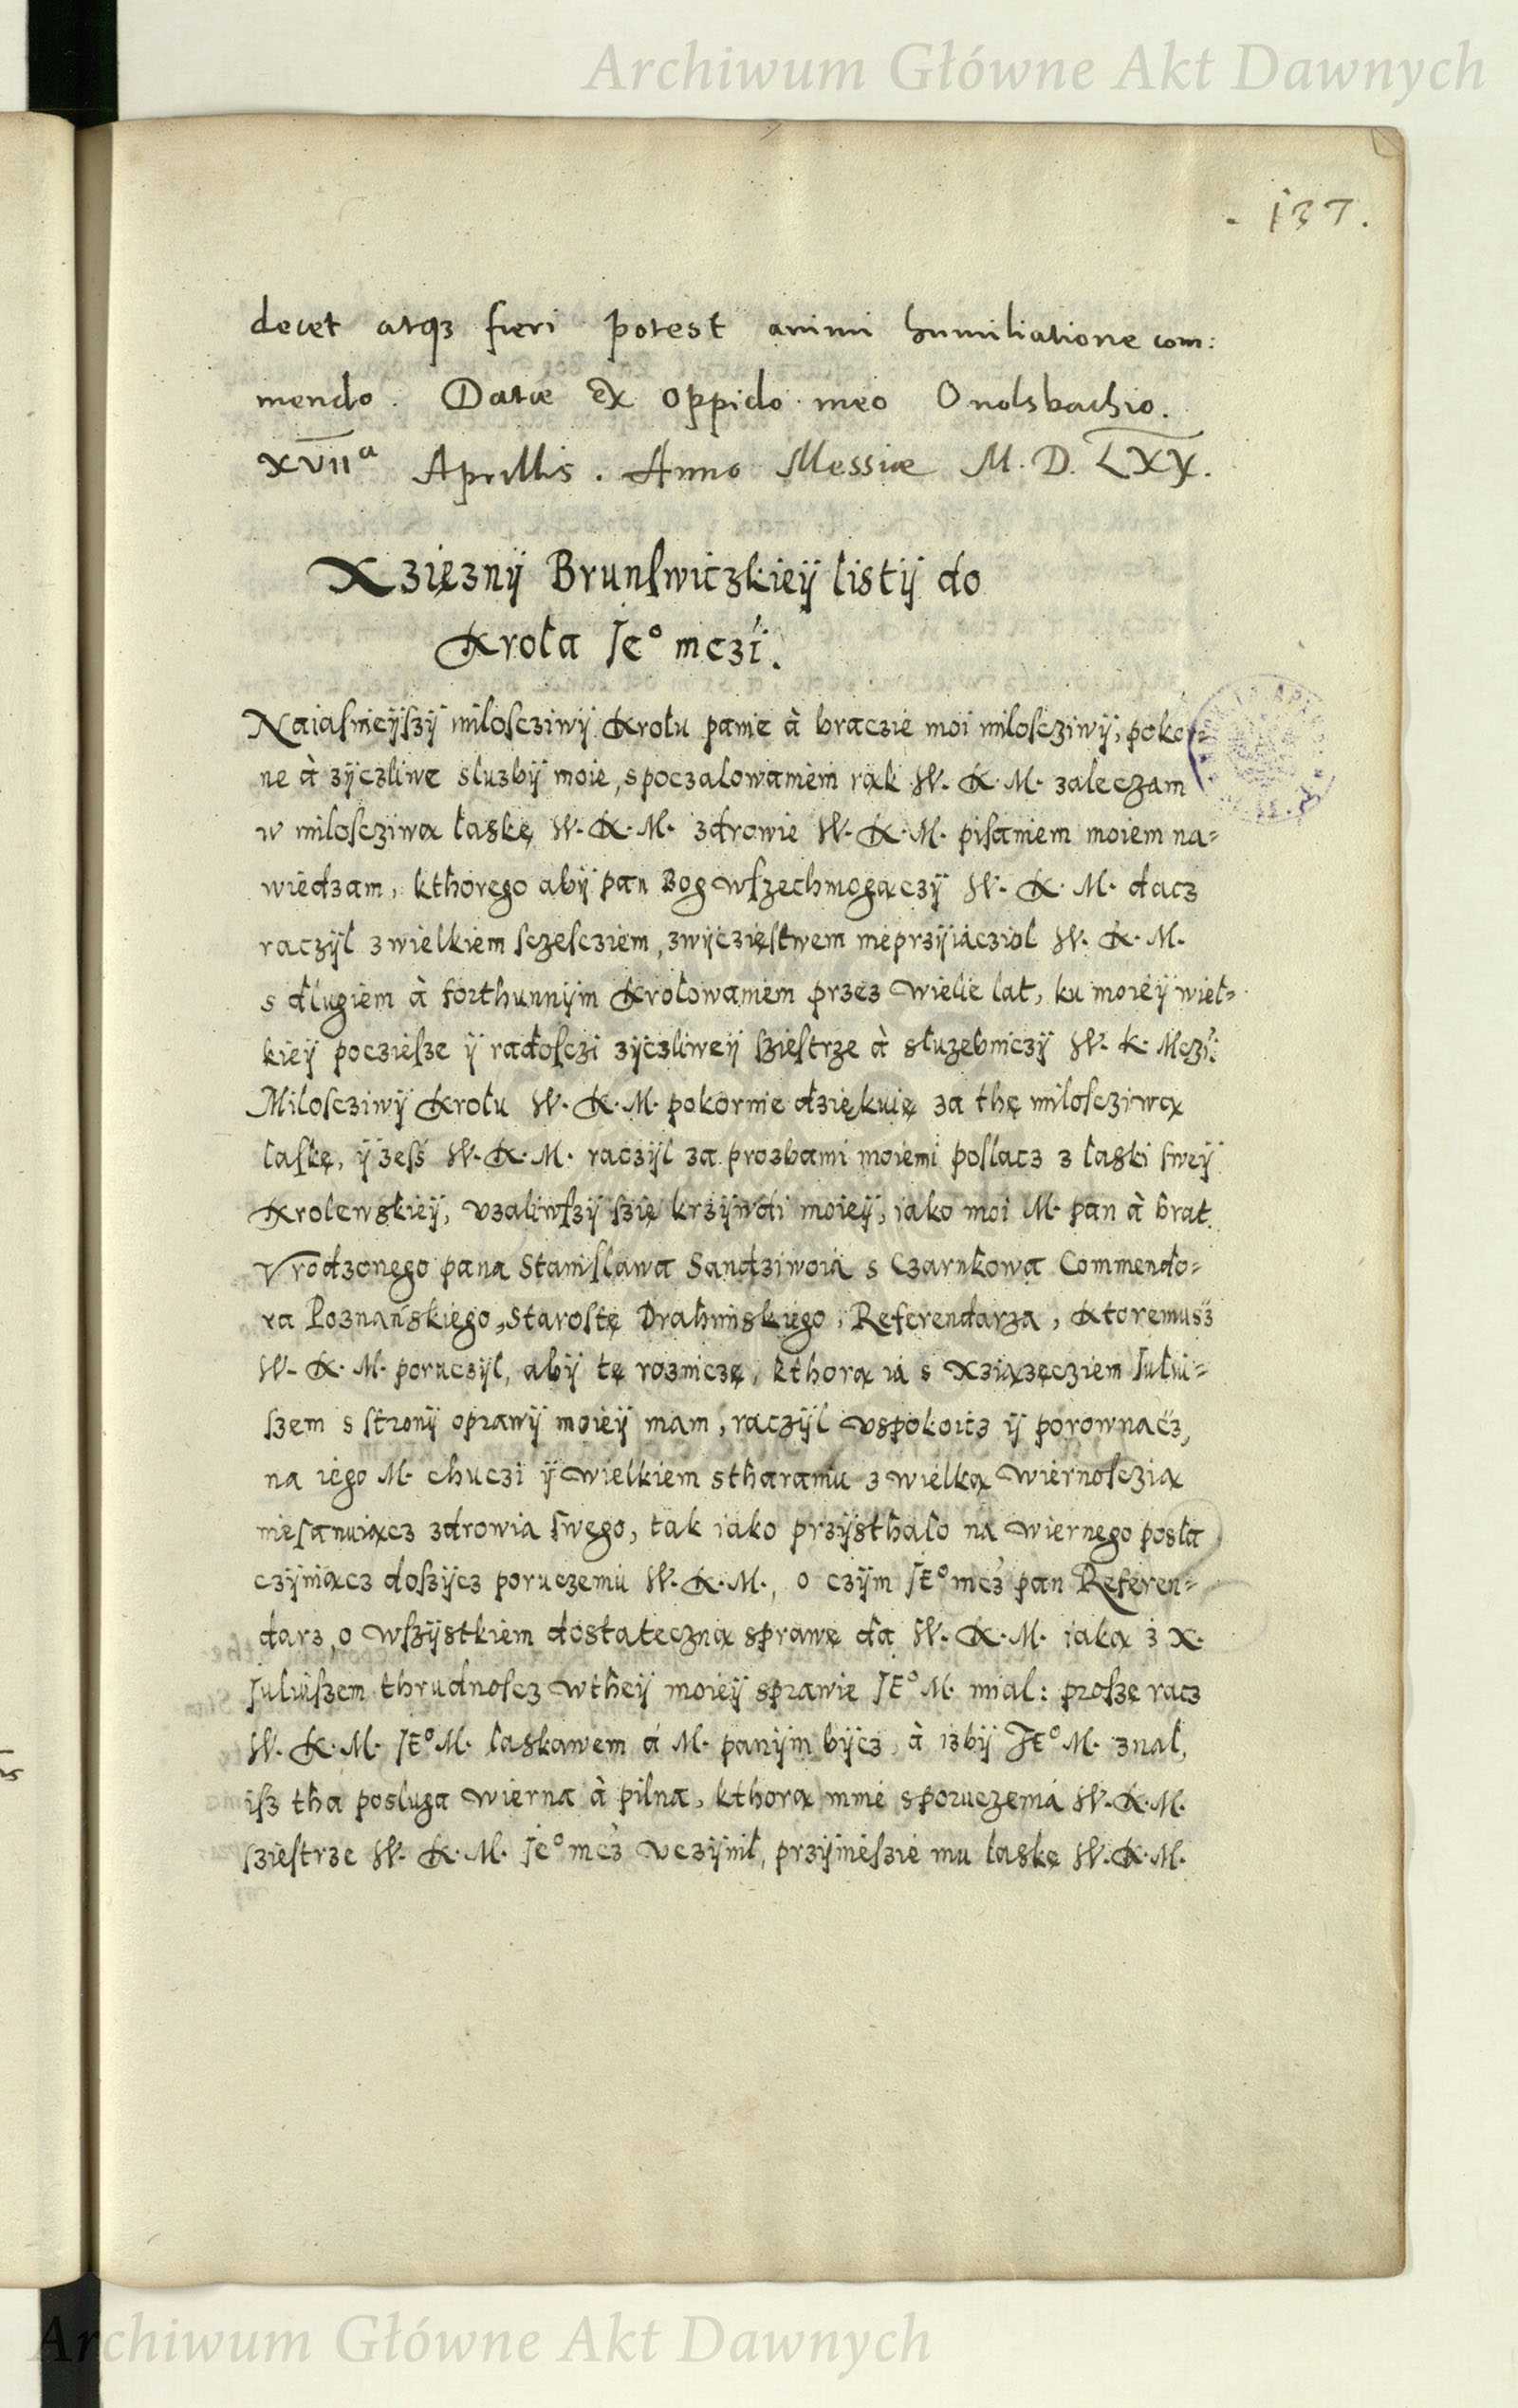 Archiwum Główne Akt Dawnych
137.
decet atqз fieri potest animi humiliatione com:
mendo. Datæ ex oppido meo Onolsbachio.
XVIIª Aprillis. Anno Messiæ M. D. LXX.
Xzięzny Brunſwiczkiey listy do
Krola Je° mczi.
Naiaſnieyſzy miloſcziwy Krolu panie à braczie moi miloſcziwy, pokor=
ne à zyczliwe sluzby moie, spoczalowaniem rąk W. K. M. zaleczam
w miloſcziwą laskę W. K. M. zdrowie W. K. M. piſaniem moiem na=
wiedzam, kthorego aby pan Bog wſzechmogączy W. K. M. dacz
raczyl z wielkiem sczeſcziem, zwyczięſtwem nieprzyiacziol W. K. M.
s dlugiem à forthunnym Krolowaniem przez wiele lat, ku moiey wiel=
kiey pocziesze y radoſczi zyczliwey ſzieſtrze à sluzebniczy W. K. Mczi.
Miloſcziwy Krolu W. K. M. pokornie dziękuię za thę miloſcziwą
laſkę, y zeſs W. K. M. raczyl za prozbami moiemi poſlacz z laski ſwey
Krolewskiey, vzaliwſzy ſzię krzywdi moiey, iako moi M. pan à brat
Vrodzonego pana Staniſlawa Sandziwoia s Czarnkowa Commendo=
ra Poznańskiego, Staroſtę Drahimskiego, Referendarza, Ktoremusz
W. K. M. poruczyl, aby tę rozniczę, kthorą ia s Xziązęcziem Juliu=
ſzem s ſtrony oprawy moiey mam, raczyl vspokoicz y porownacz,
na iego M. chuczi y wielkiem stharaniu z wielką wiernoſczią
nieſanuiącz zdrowia ſwego, tak iako przysthalo na wiernego posla
czyniącz doſzycz poruczeniu W. K. M., o czym JE° mcz pan Referen=
darz, o wſzystkiem dostateczną sprawę da W. K. M. iaką z X.
Juliuſzem thrudnoſcz w they moiey sprawie JE° M. mial: proſzę racz
W. K. M. JE° M. laskawem á M. panym bycz, à izby JE° M. znal,
iſz tha posluga wierna à pilna, kthorą mnie s poruczenia W. K. M.
ſzieſtrze W. K. M. Je° mcz vczynil, przynieſzie mu laskę W. K. M.
Archiwum Główne Akt Dawnych